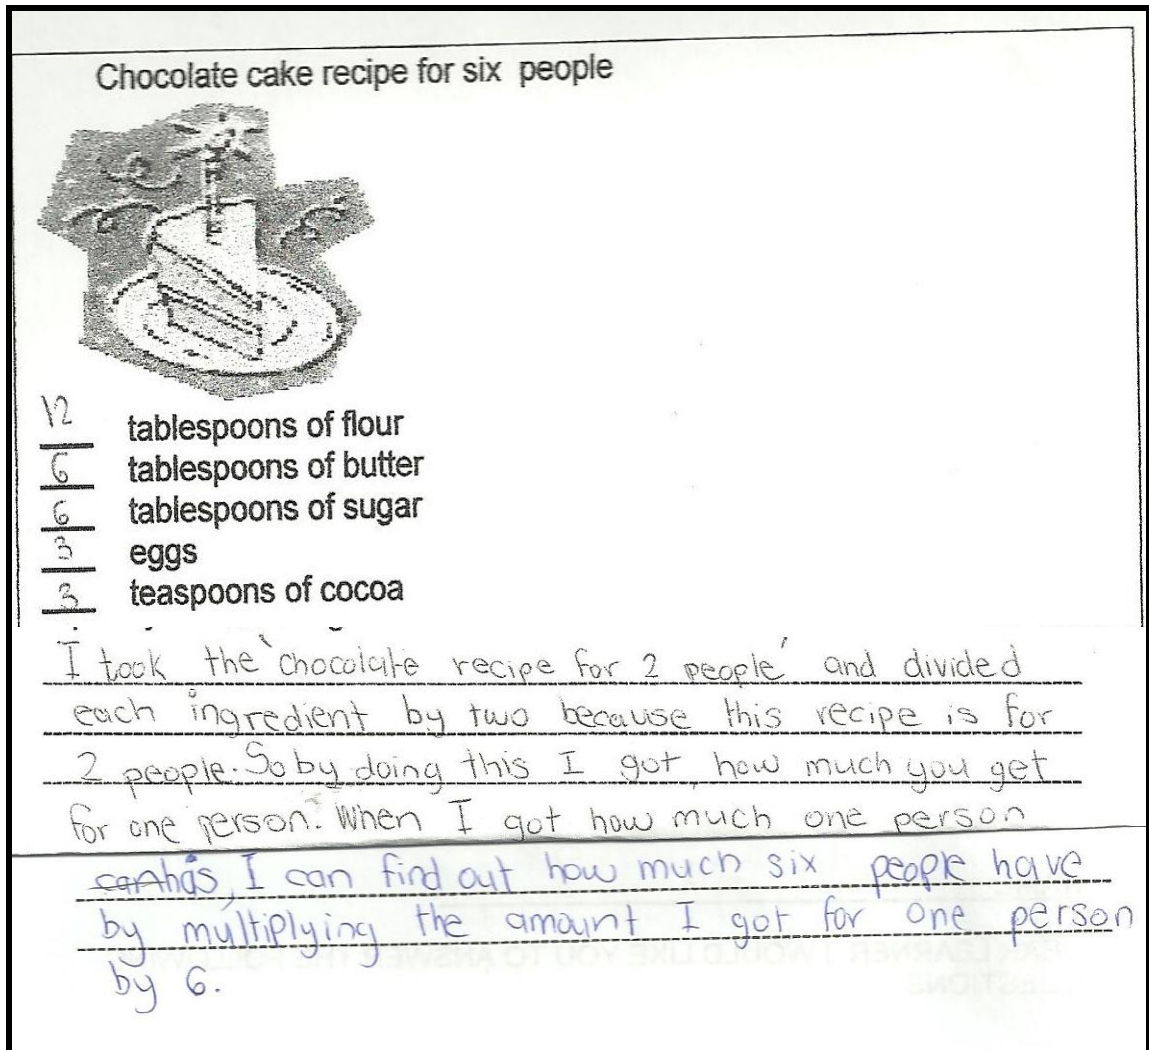 Chocolate cake recipe for six people
12 tablespoons of flour
6 tablespoons of butter
6 tablespoons of sugar
3 eggs
3 teaspoons of cocoa
I took the 'chocolate recipe for 2 people' and divided
each ingredient by two because this recipe is for
2 people. So by doing this I got how much you get
for one person. When I got how much one person
can has, I can find out how much six people have
by multiplying the amount I got for one person
by 6.